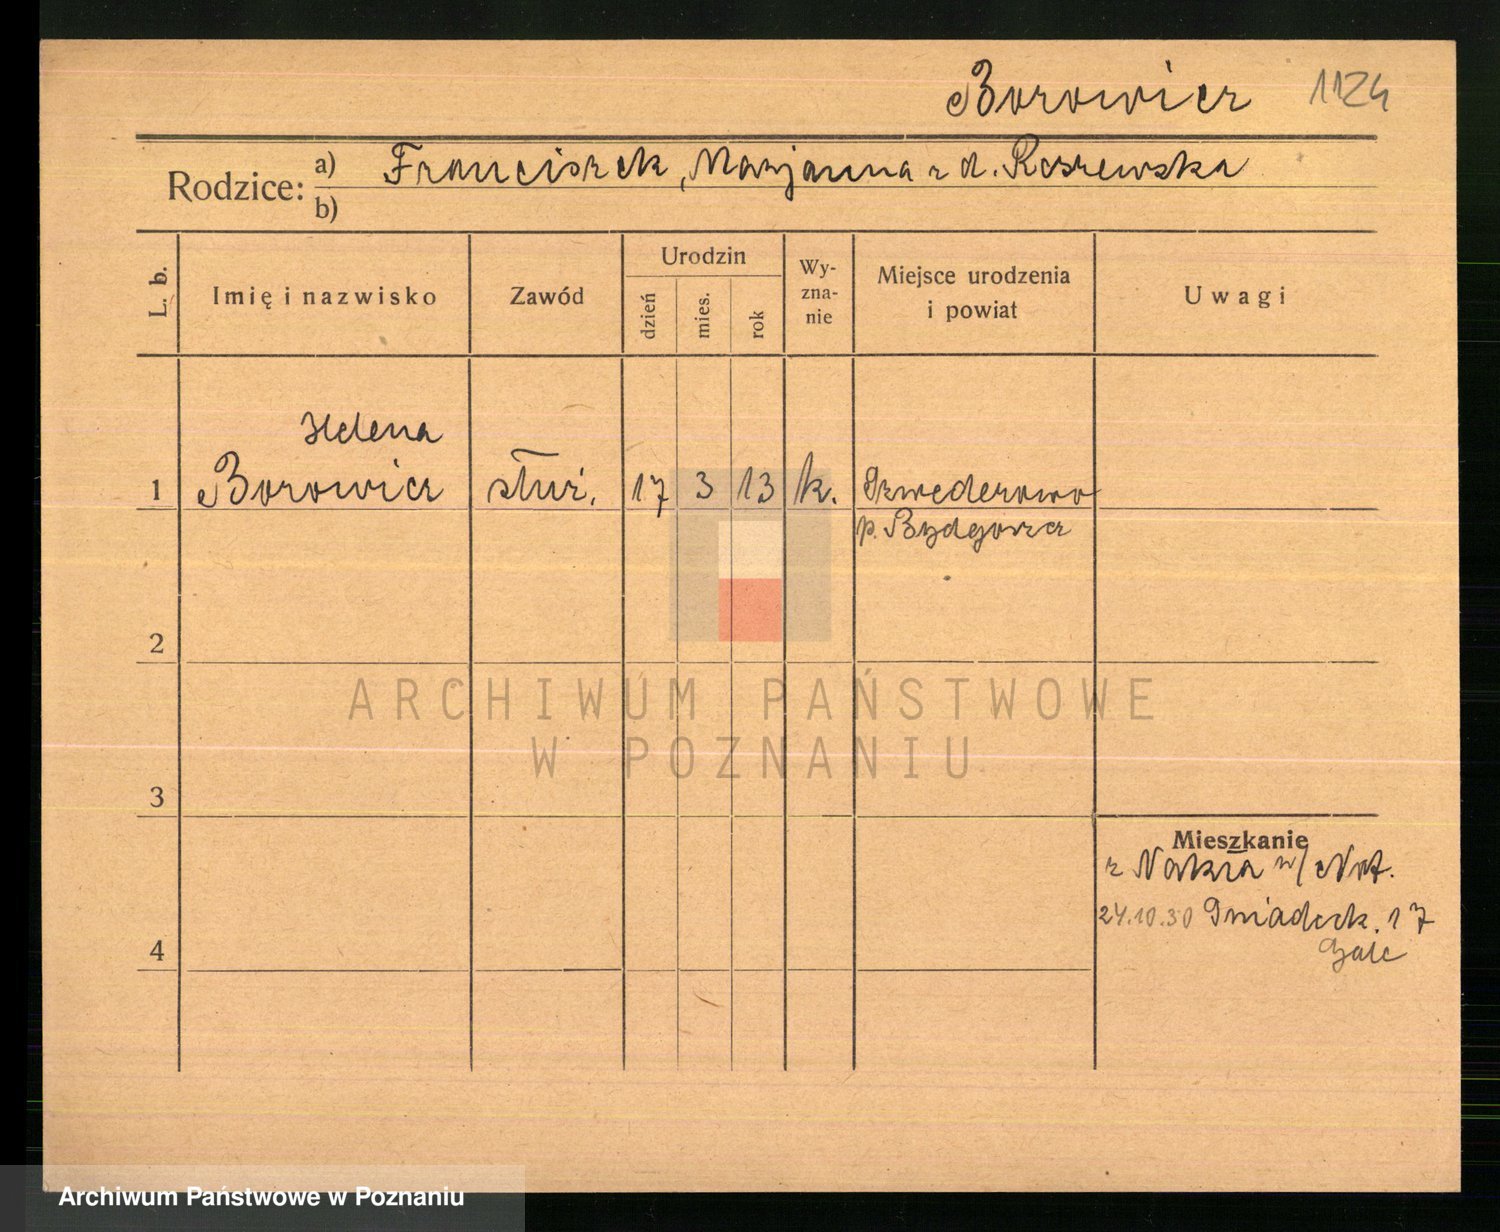 Borowicz 1124
Rodzice: a) Franciszek, Marjanna z d. Roszewska
b)
L. b.
Imię i nazwisko
Zawód
Urodzin
dzień
mies.
rok
Wy-
zna-
nie
Miejsce urodzenia
i powiat
Uwagi
Helena
1 Borowicz służ. 17 3 13 k. Szwederowo
p. Bydgoszcz
2
ARCHIWUM PAŃSTWOWE
W POZNANIU
3
Mieszkanie
z Nakła n/Not.
24.10.30 Śniadeck. 17
4
Archiwum Państwowe w Poznaniu